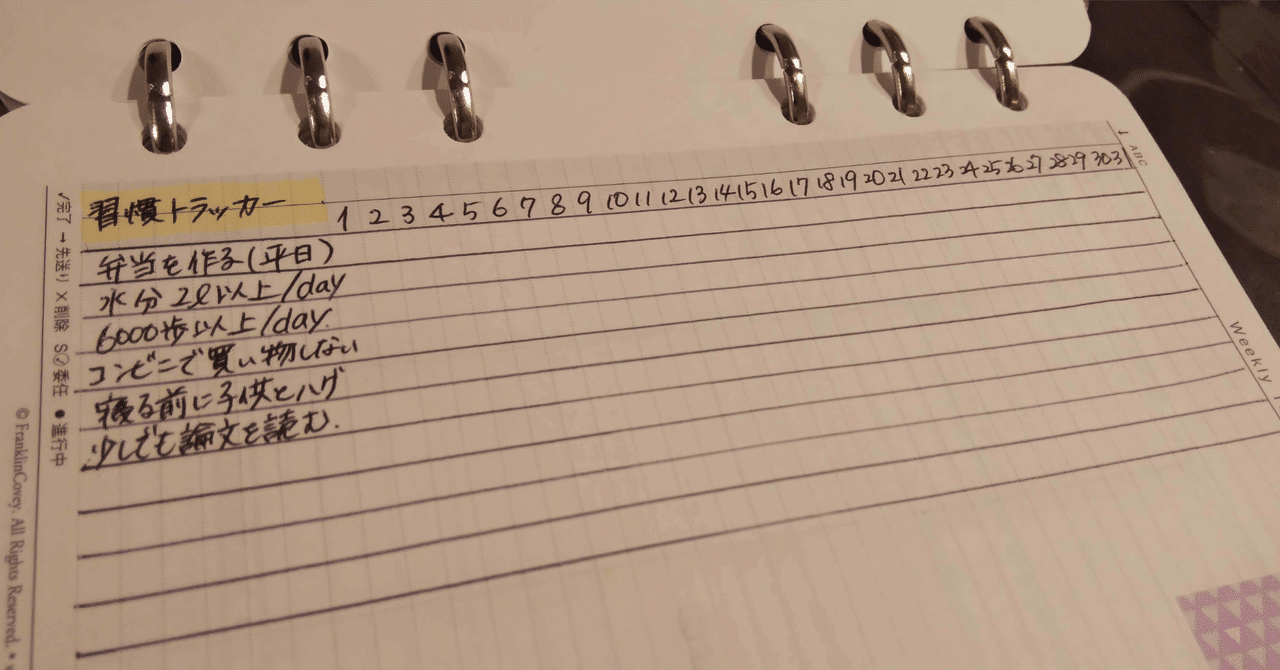 習慣トラッカー 1 2 3 4 5 6 7 8 9 10 11 12 13 14 15 16 17 18 19 20 21 22 23 24 25 26 27 28 29 30 31
弁当を作る(平日)
水分 2ℓ以上/day
6000歩以上/day.
コンビニで買い物しない
寝る前に子供とハグ
少しでも論文を読む.
✓完了 → 先送り × 削除 S✓委任 ● 進行中
© FranklinCovey. All Rights Reserved. •
ABC
Weekly